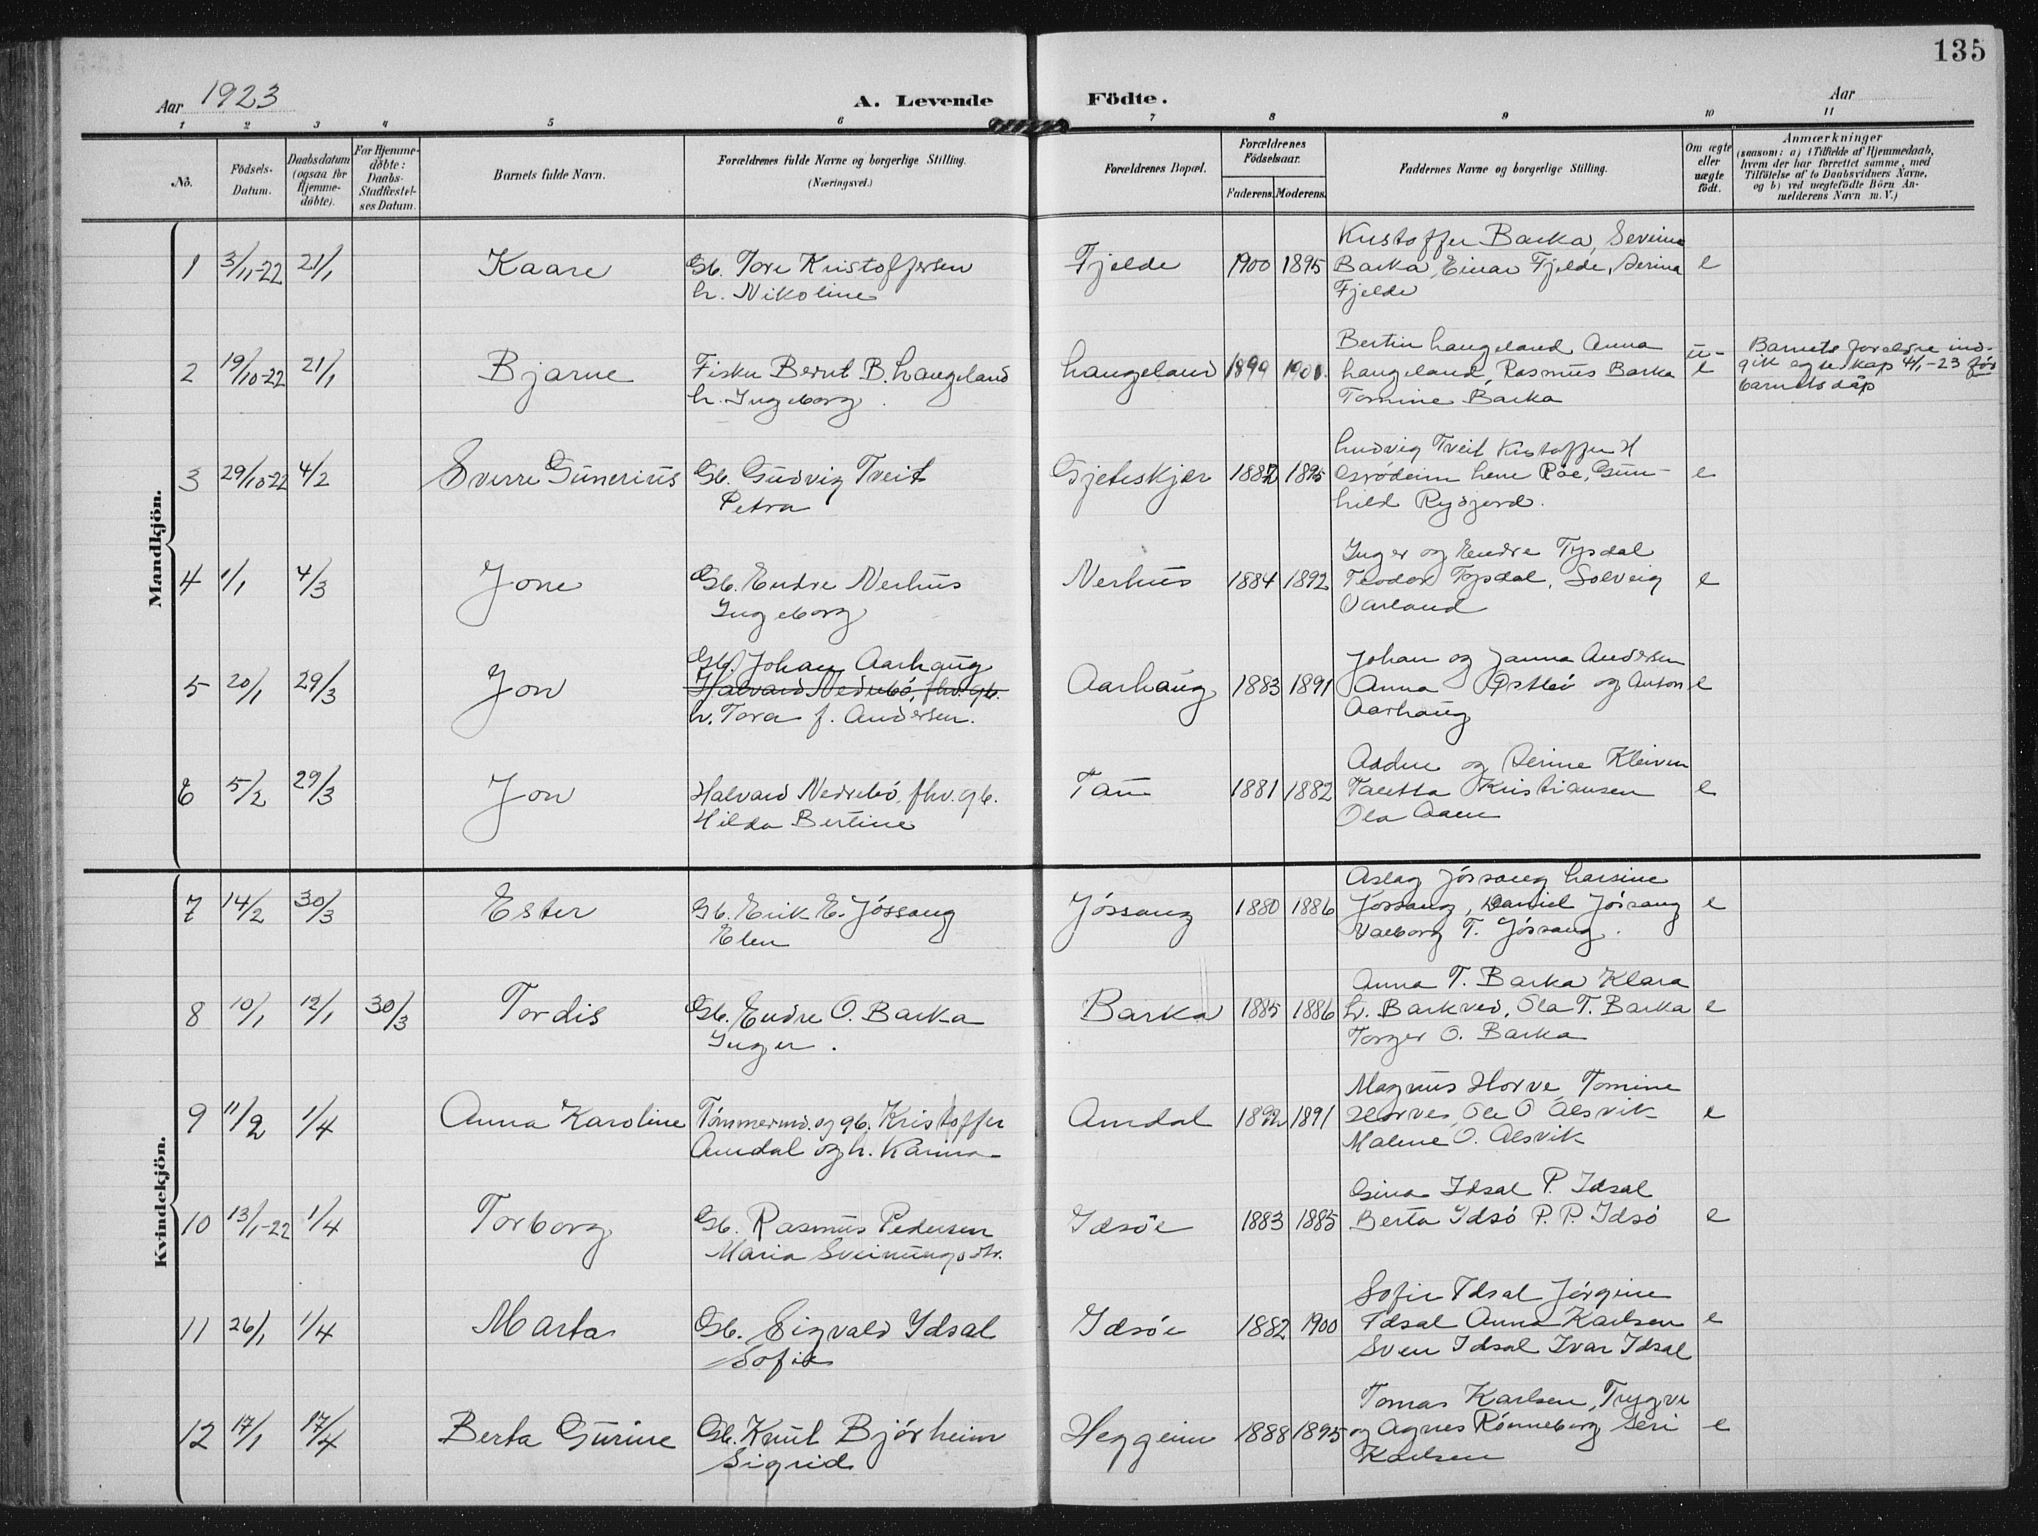 135
Aar 1923
A. Levende Födte.
Aar
1 2 3 4 5 6 7 8 9 10 11
No.
Födsels-Datum.
Daabsdatum (ogsaa for Hjemme-døbte).
For Hjemme-døbte: Daabs-Stadfæstel-ses Datum.
Barnets fulde Navn.
Forældrenes fulde Navne og borgerlige Stilling. (Næringsvei.)
Forældrenes Bopæl.
Forældrenes Födselsaar.
Faderens. Moderens.
Faddernes Navne og borgerlige Stilling.
Om ægte eller uægte födt.
Anmærkninger
(saasom: a) i Tilfælde af Hjemmedaab, hvem der har forrettet samme, med Tilföielse af to Daabsvidners Navne, og b) ved uægtefödte Börn An-melderens Navn m. V.)
Mandkjön.
1 3/11-22 21/1 Kaare Gb. Tore Kristoffersen
h. Nikoline
Fjelde 1900 1895
Kristoffer Barka, Severine
Barka, Einar Fjelde, Serina
Fjelde
e
2 19/10-22 21/1 Bjarne Fisker Bernt B. Langeland
h. Ingeborg.
Langeland 1899 1901.
Bertin Langeland Anna
Langeland, Rasmus Barka
Tomine Barka
u-
e
Barnets foreldre ind-
gik egteskap 4/1-23 før
barnets dåp
3 29/10-22 4/2 Sverre Gunerius Gb. Gudvig Tveit
Petra
Gjeteskjær 1887 1895
Ludvig Tveit Kristoffer H
Grødeim Lene Roe, Gun-
hild Rydjord.
e
4 1/1 4/3 Jone Gb. Endre Nerhus
Ingeborg
Nerhus 1884 1892
Inger og Endre Tysdal
Teodor Tysdal, Solveig
Varland
e
5 20/1 29/3 Jon Gb. Johan Aarhaug
Halvard Nedrebø fhv. gb.
h. Tora f. Andersen.
Aarhaug 1883 1891
Johan og Janna Andersen
Anna Østbø og Anton
Aarhaug
e
6 5/2 29/3 Jon Halvard Nedrebø, fhv. gb.
Hilda Bertine
Tau 1881 1882
og Serine Kleiven
Taletta Kristiansen
Ola Aaen
e
Kvindekjön.
7 14/2 30/3 Ester Gb. Erik E. Jøssang
Elen
Jøssang 1880 1886
Aslag Jøssang Larsine
Jøssang, Daniel Jøssang
Valborg T. Jøssang.
e
8 10/1 12/1 30/3 Tordis Gb. Endre O. Barka
Inger.
Barka 1885 1886
Anna T. Barka Klara
L. Barkved, Ola T. Barka
Torger O. Barka
e
9 11/2 1/4 Anna Karoline Tømmermd. og gb. Kristoffer
Amdal og h. Kanna
Amdal 1892 1891
Magnus Horve, Tomine
Horve, Ole O. Alsvik
Malene O. Alsvik
e
10 13/1-22 1/4 Torborg Gb. Rasmus Pedersen
Maria Sveinungsdtr.
Idsøe 1883 1885
Gina Idsal P. Idsal
Berta Idsø P. P. Idsø
e
11 26/1 1/4 Marta Gb. Sigvald Idsal
Sofie
Idsøe 1882 1900
Sofie Idsal Jørgine
Idsal Anna Karlsen
Sven Idsal Ivar Idsal
e
12 17/1 17/4 Berta Gurine Gb. Knut Bjørheim
Sigrid
Heggeim 1888 1895
Tomas Karlsen, Trygve
og Agnes Rønneborg Seri
Karlsen
e